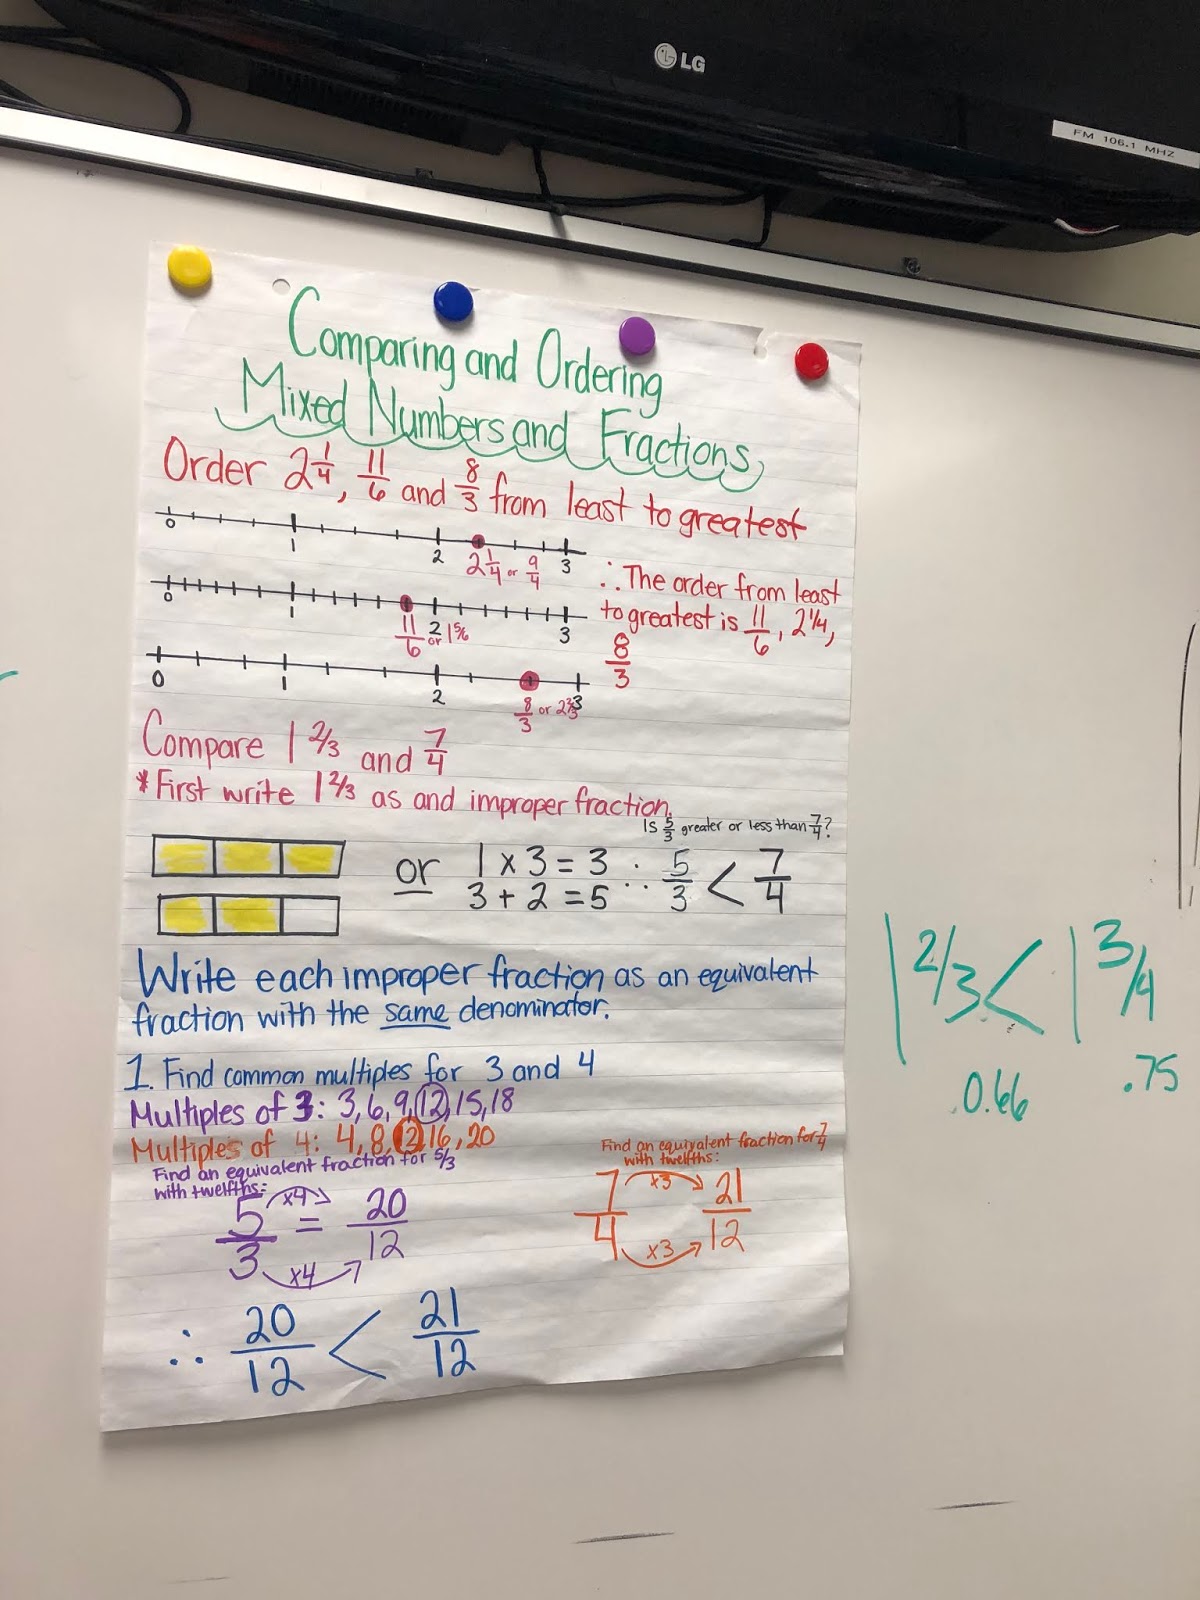 LG
FM 106.1 MHZ
Comparing and Ordering
Mixed Numbers and Fractions
Order 2 1/4, 11/6 and 8/3 from least to greatest
0 1 2 3
2 1/4 or 9/4
0 1 2 3
11/6 or 1 5/6
0 1 2 3
8/3 or 2 2/3
∴ The order from least
to greatest is 11/6, 2 1/4,
8/3
Compare 1 2/3 and 7/4
*First write 1 2/3 as and improper fraction.
Is 5/3 greater or less than 7/4?
or 1 x 3 = 3 ∴ 5/3 < 7/4
3 + 2 = 5
Write each improper fraction as an equivalent
fraction with the same denominator.
1. Find common multiples for 3 and 4
Multiples of 3: 3, 6, 9, 12, 15, 18
Multiples of 4: 4, 8, 12, 16, 20
Find an equivalent fraction for 5/3
with twelfths:
x4
5/3 = 20/12
x4
Find an equivalent fraction for 7/4
with twelfths:
x3
7/4 21/12
x3
∴ 20/12 < 21/12
1 2/3 < 1 3/4
0.66 .75